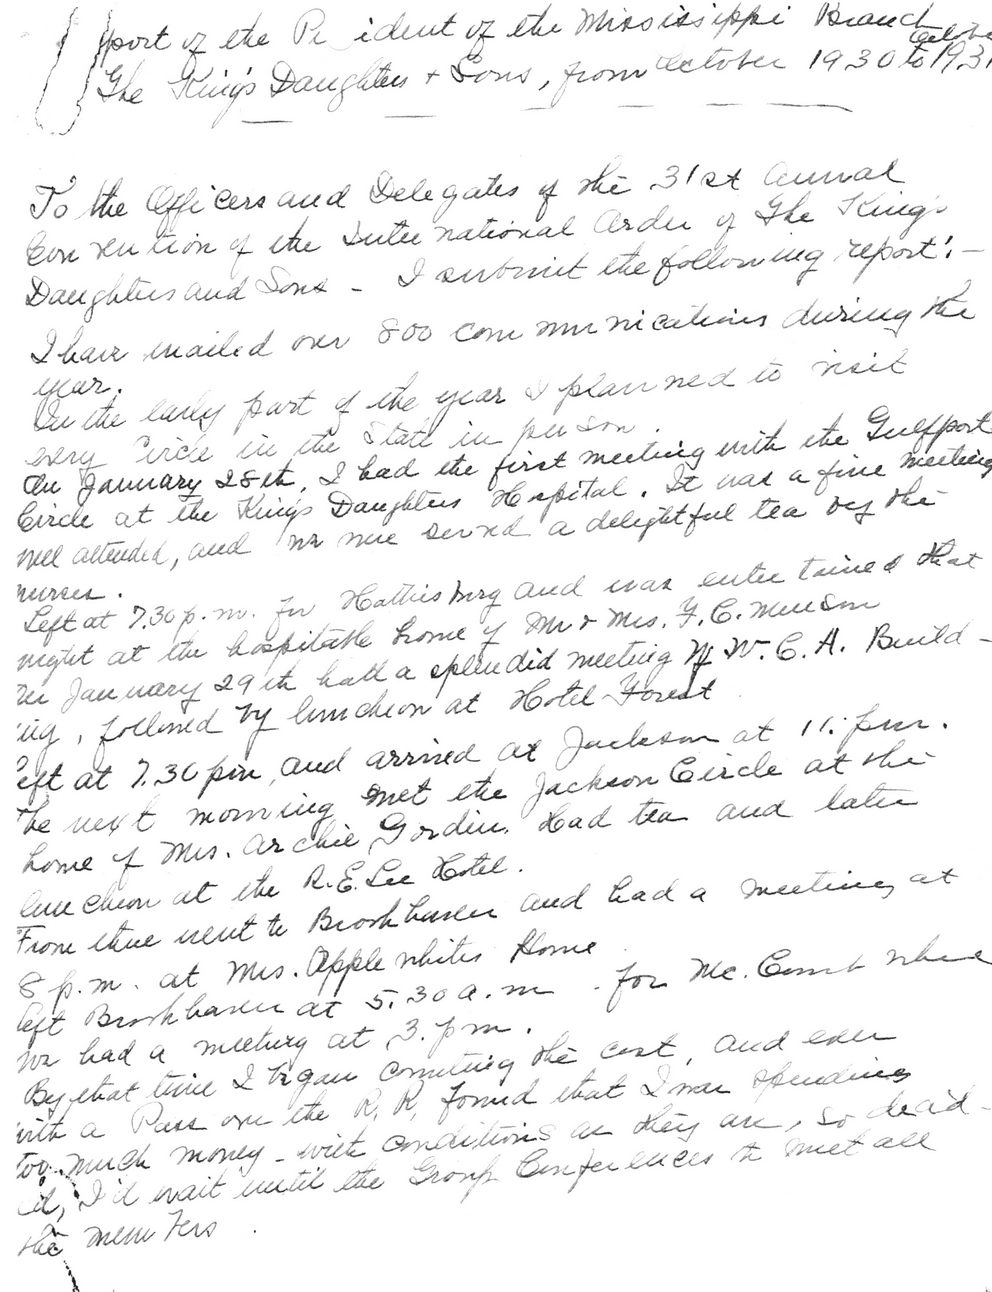 port of the President of the Mississippi Branch
The King's Daughters + Sons, from October 1930 to October 1931
To the Officers and Delegates of the 31st Annual
Convention of the International Order of The King's
Daughters and Sons - I submit the following report: -
I have mailed over 800 communications during the
year.
In the early part of the year I planned to visit
every Circle in the State in person.
On January 28th, I had the first meeting with the Gulfport
Circle at the King's Daughters Hospital. It was a fine meeting
well attended, and we were served a delightful tea by the
nurses.
Left at 7.30 p.m. for Hattiesburg and was entertained that
night at the hospitable home of Mr & Mrs. F. C. Munson
On January 29th had a splendid meeting Y. W. C. A. Build-
ing, followed by luncheon at Hotel Forest
Left at 7.30 pm, and arrived at Jackson at 11. pm.
The next morning met the Jackson Circle at the
home of Mrs. Archie Gordin. Had tea and later
luncheon at the R. E. Lee Hotel.
From there went to Brookhaven and had a meeting at
8 p.m. at Mrs. Applewhites Home
left Brookhaven at 5.30 a.m. for Mc. Comb where
we had a meeting at 3. pm.
By that time I began counting the cost, and even
with a Pass on the R. R. found that I was spending
too much money - with conditions as they are, so decid-
ed, I'd wait until the Group Conferences to meet all
the members.